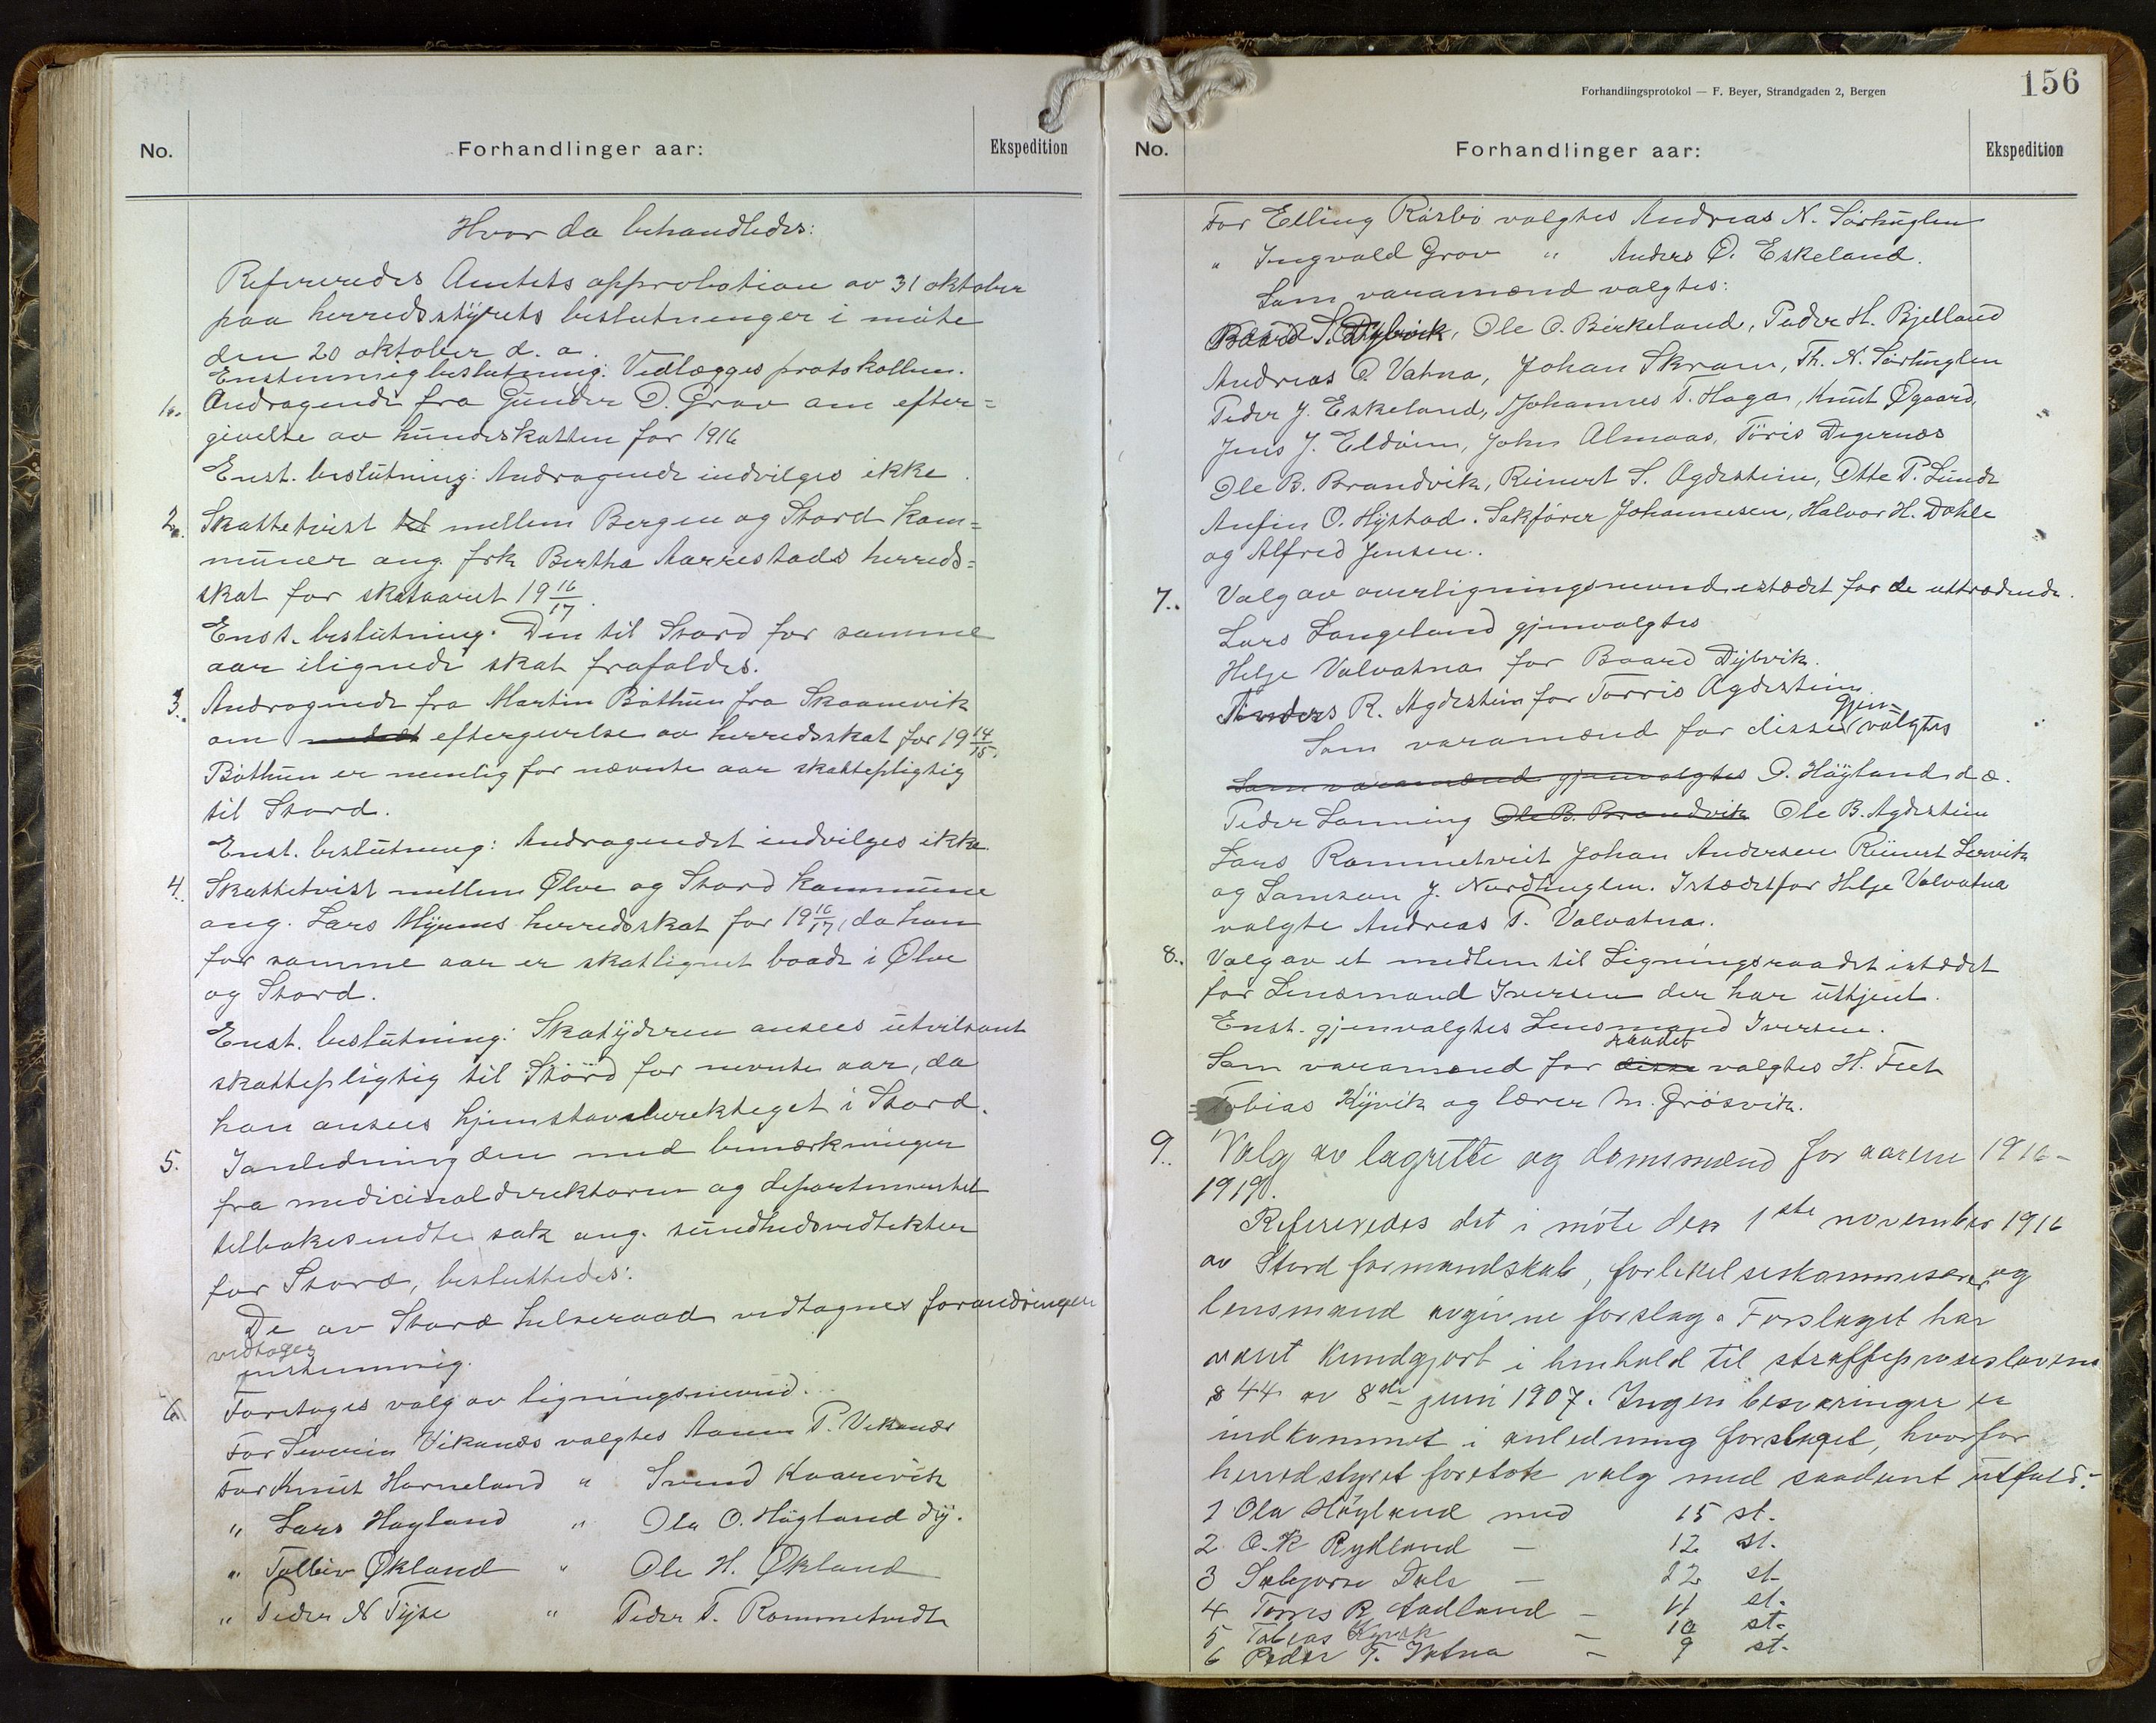 No.
Forhandlinger aar:
Ekspedition
Hvor da behandledes:
Refereredes Amtets approbation av 31 oktober
paa herredsstyrets beslutninger i møte
den 20 oktober d. a.
Enstemmig beslutning: Vedlægges protokollen.
1. Andragende fra Gunder O. Grov om efter=
givelse av hundeskatten for 1916
Enst. beslutning: Andragende indvilges ikke.
2. Skattetvist til mellem Bergen og Stord kom=
muner ang. frk Bertha Aarrestads herreds=
skat for skataaret 19 16/17.
Enst. beslutning. Den til Stord for samme
aar ilignede skat frafaldes.
3. Andragende fra Martin Bøthun fra Skaanevik
om eftergivelse av herredsskat for 19 14/15.
Bøthun er nemlig for nævnte aar skattepligtig
til Stord.
Enst. beslutning: Andragendet indvilges ikke.
4. Skattetvist mellem Ølve og Stord kommune
ang. Lars Myrnes herredsskat for 19 16/17, da han
for samme aar er skatlignet baade i Ølve
og Stord.
Enst. beslutning: Skatyderen ansees utvilsomt
skattepligtig til Stord for nevnte aar, da
han ansees hjemstavsberekteget i Stord.
5. Ianledning den med bemærkninger
fra medicinaldirektøren og departementet
tilbakesendte sak ang. sundhedsvedtekter
for Stord, besluttedes:
De av Stord helseraad vedtagnes forandringer
vedtages
enstemmig.
6. Foretoges valg av ligningsnevnd.
For Severin Vikanes valgtes Aamu P. Vikanes
For Knut Horneland " Svend Kaarevik
" Lars Hagland " Ola O. Høgland dy.
" Tolleiv Økland " Ole H. Økland
" Peder N Tyse " Peder T. Rommetvedt
Forhandlingsprotokol — F. Beyer, Strandgaden 2, Bergen
156
No.
Forhandlinger aar:
Ekspedition
For Elling Røsbø valgtes Andreas N. Sørhuglen
" Ingvald Grov " Anders O. Eskeland.
Som varamænd valgtes:
Baard S. Dybvik, Ole O. Birkeland, Peder H. Bjelland
Andreas O. Vatna, Johan Skram, Th. N. Sørhuglen
Peder J. Eskeland, Johannes T. Haga, Knut Øgaard,
Jens J. Eldøien, John Almaas, Tøris Digernæs
Ole B. Brandvik, Reinert S. Agdestein, Otte P. Lunde
Anfin O. Hystad. Sakfører Johannesen, Halvor H. Dahle
og Alfred Jensen.
7. Valg av overligningsnevnd istædet for de uttrædende.
Lars Langeland gjenvalgtes
Helje Valvatna for Baard Dybvik.
Anders R. Agdestein for Torris Agdestein
Som varamænd for disse gjen=
valgtes
Som varamænd gjenvalgtes O. Høyland d æ.
Peder Lønning Ole B. Brandvik Ole B. Agdestein
Lars Rommetveit Johan Andersen Reinert Lervik
og Samson J. Nordhuglen. Istædetfor Helje Valvatna
valgte Andreas T. Valvatna.
8. Valg av et medlem til Ligningsraadet istædet
for Lensmand Iversen der har uttjent.
Enst. gjenvalgtes Lensmand Iversen.
raadet
Som varamænd for disse valgtes H. Feet
Tobias Kyvik og lærer M. Grøsvik.
9. Valg av lagrette og domsmænd for aarene 1916-
1919.
Refereredes det i møte den 1ste november 1916
av Stord formandskab, forlikelseskommisær og
lensmand avgivne forslag. Forslaget har
været kundgjort i henhold til straffeproseslovens
§ 44 av 8de juni 1907. Ingen besværinger er
indkommet i anledning forslaget, hvorfor
herredstyret foretok valg med saadant utfald:
1 Ola Høyland med 15 st.
2 O. K Rydland — 12 st.
3 Salgjerse Dale — 12 st
4 Torris R Aadland — 11 st.
5 Tobias Kyvik — 10 st.
6 Peder T. Vatna — 9 st.